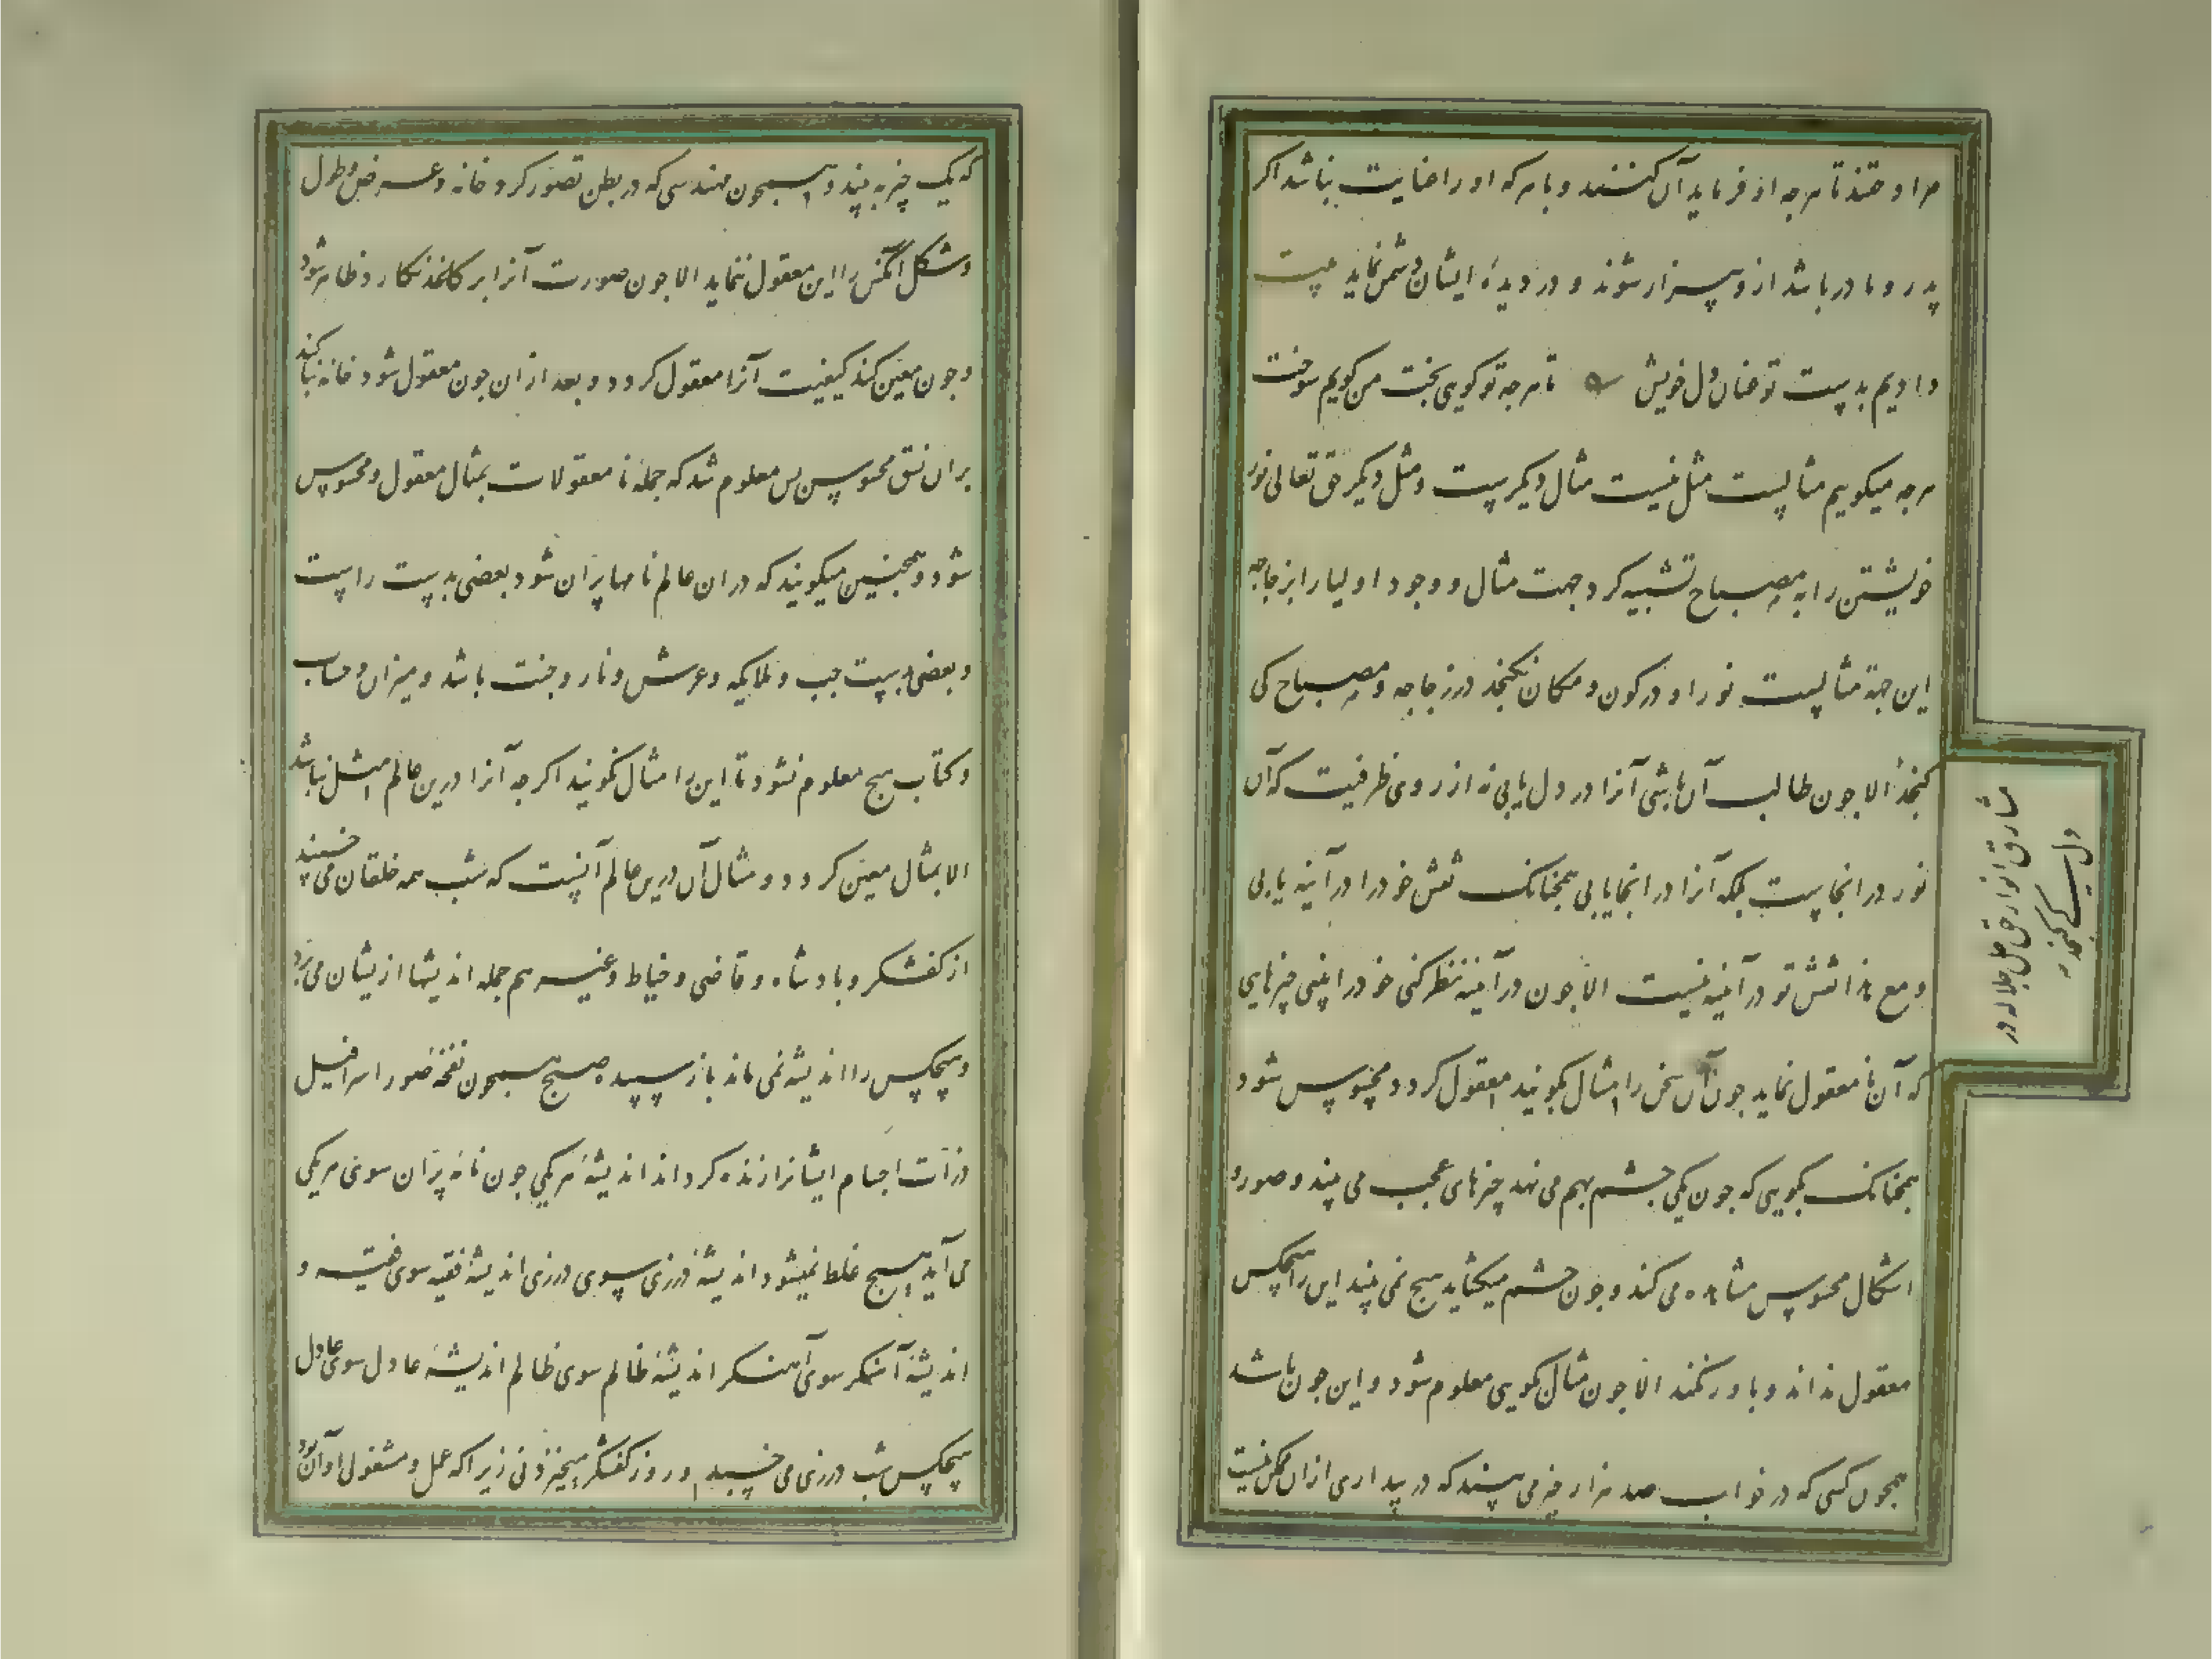 مراو حقند تا هرچه او فرماید آن کنند و با هر که او را عنایت نباشد اکر
پدر و مادر باشد از و بیزار شوند و در دیدهٔ ایشان دشمن نماید بیت
دادیم بدست تو عنان دل خویش تا هرجه تو کویی بخت من کویم سوخت
هرجه میکویم مثالیست مثل نیست مثال دیکرست و مثل دیکر حق تعالی نور
خویشتن را به مصباح تشبیه کرد جهت مثال و وجود اولیا را بزجاجه
این جهة مثالیست نور او در کون و مکان نکنجد در زجاجه و مصباح کی
کنجد الا جون طالب آن باشی آنرا در دل یابی نه از روی ظرفیت که آن
نور در انجاست بلکه آنرا در انجا یابی همجنانک نقش خود را در آینه یابی
و مع هذا نقش تو در آینه نیست الا جون در آینه نظر کنی خود را بینی چیزهایی
که آن نامعقول نماید جون آن سخن را مثال بکویند معقول کردد محسوس شود
همجنانک بکویی که جون یکی جشم بهم می نهد چیزهای عجب می بیند و صور و
اشکال محسوس مشاهده می کند و جون جشم میکشاید هیج نمی بیند این را هیجکس
معقول نداند و باور نکند الا جون مثال بکویی معلوم شود و این جون باشد
همجون کسی که در خواب صد هزار چیز می بیند که در بیداری از ان ممکن نیست
مشارق انوار حق جل جلاله در
دل کی کنجد
که یک چیز به بیند و همجون مهندسی که در بطن تصور کرد خانه و عرض و طول
و شکل آنکس را این معقول ننماید الا جون صورت آنرا بر کاغذ نکارد ظاهر شود
و جون معین کند کیفیت آنرا معقول کردد و بعد از ان جون معقول شود خانه بنا کند
بران نسق محسوس پس معلوم شد که جمله نامعقولات بمثال معقول و محسوس
شود و همجنین میکویند که در ان عالم نامها پران شود بعضی بدست راست
و بعضی بدست جپ و ملایکه و عرش و نار و جنت باشد و میزان و حساب
و کتاب هیج معلوم نشود تا این را مثال نکویند اکرجه آنرا درین عالم مثل نباشد
الا بمثال معین کردد و مثال آن درین عالم آنست که شب همه خلقان می خسپند
از کفشکر و بادشاه و قاضی و خیاط و غیرهم جمله اندیشها ازیشان می پرد
و هیجکس را اندیشه نمی ماند باز سپیده صبح همجون نفخهٔ صور اسرافیل
ذرات اجسام ایشانرا زنده کرداند اندیشهٔ هریکی جون نامه پران سوی هریکی
می آید هیج غلط نمیشود اندیشهٔ درزی سوی درزی اندیشهٔ فقیه سوی فقیه و
اندیشهٔ آهنکر سوی آهنکر اندیشهٔ ظالم سوی ظالم اندیشهٔ عادل سوی عادل
هیجکس شب درزی می خسپد و روز کفشکر میخیزد نی زیرا که عمل و مشغول او آن بود